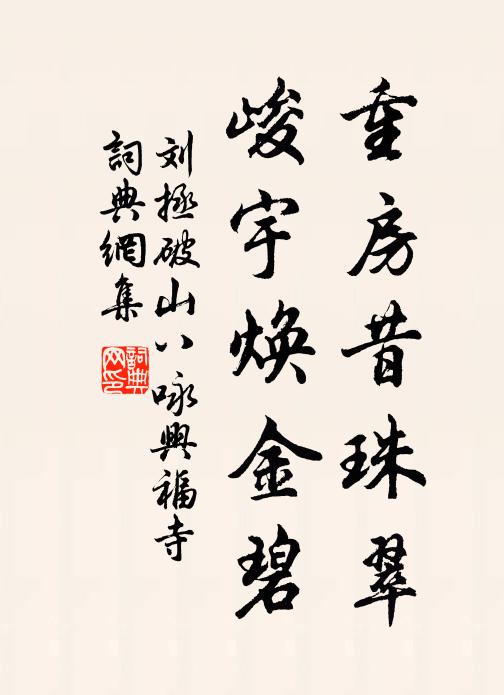 重房昔珠翠
峻宇焕金碧
刘拯破山八咏興福寺
詞典網集
詞典网印